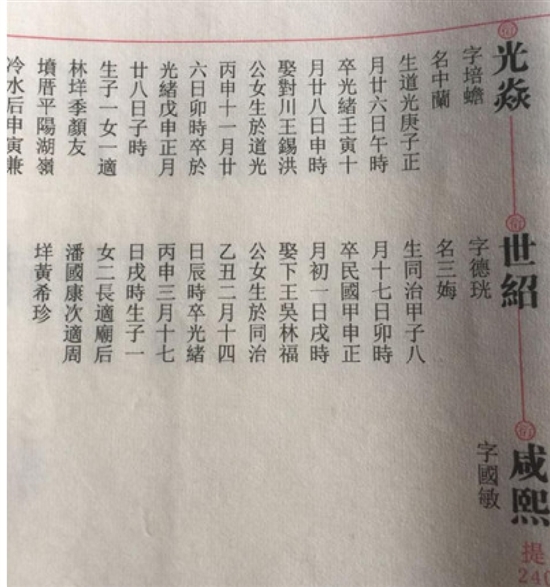 光焱
字培蟾
名中蘭
生道光庚子正
月廿六日午時
卒光緒壬寅十
月廿八日申時
娶對川王錫洪
公女生於道光
丙申十一月廿
六日卯時卒於
光緒戊申正月
廿八日子時
生子一女一適
林垟季顏友
墳厝平陽湖嶺
冷水后申寅兼
世紹
字德珖
名三娒
生同治甲子八
月十七日卯時
卒民國甲申正
月初一日戌時
娶下王吳林福
公女生於同治
乙丑二月十四
日辰時卒光緒
丙申三月十七
日戌時生子一
女二長適廟后
潘國康次適周
垟黃希珍
咸熙
字國敏
提